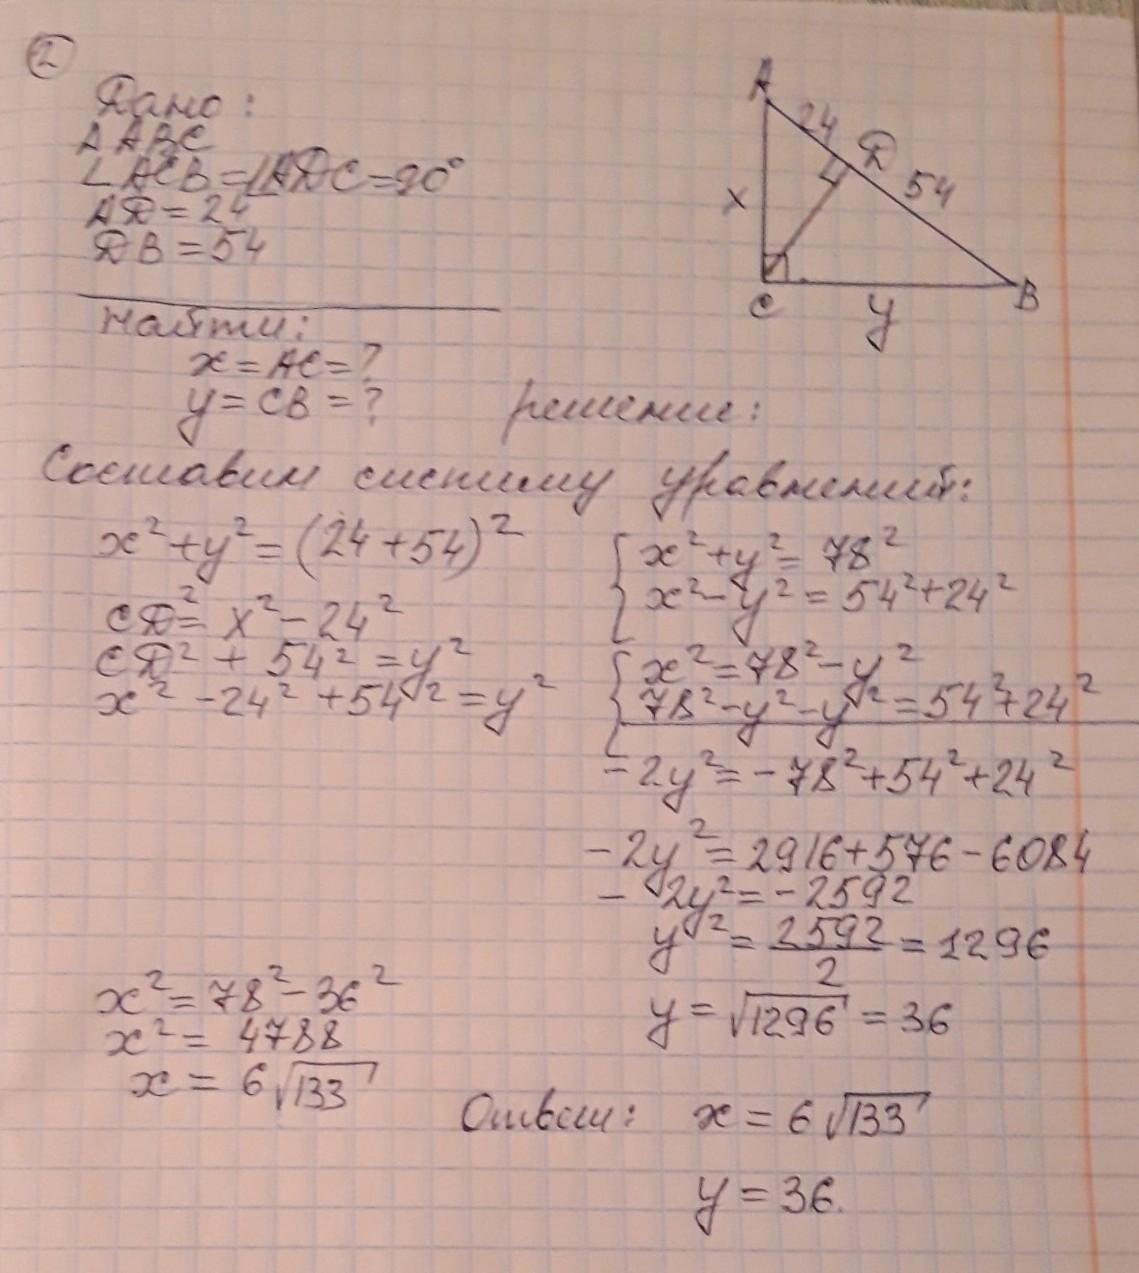 2
Дано:
Δ ABC
∠ACB = ∠ADC = 90°
AD = 24
DB = 54
Найти:
x = AC = ?
y = CB = ?
A
24
D
54
x
C
y
B
решение:
Составим систему уравнений:
x² + y² = (24 + 54)²
CD² = x² - 24²
CD² + 54² = y²
x² - 24² + 54² = y²
{ x² + y² = 78²
x² - y² = 54² + 24²
{ x² = 78² - y²
78² - y² - y² = 54² + 24²
-2y² = -78² + 54² + 24²
-2y² = 2916 + 576 - 6084
-2y² = -2592
y² = 2592/2 = 1296
y = √1296 = 36
x² = 78² - 36²
x² = 4788
x = 6√133
Ответ: x = 6√133
y = 36.